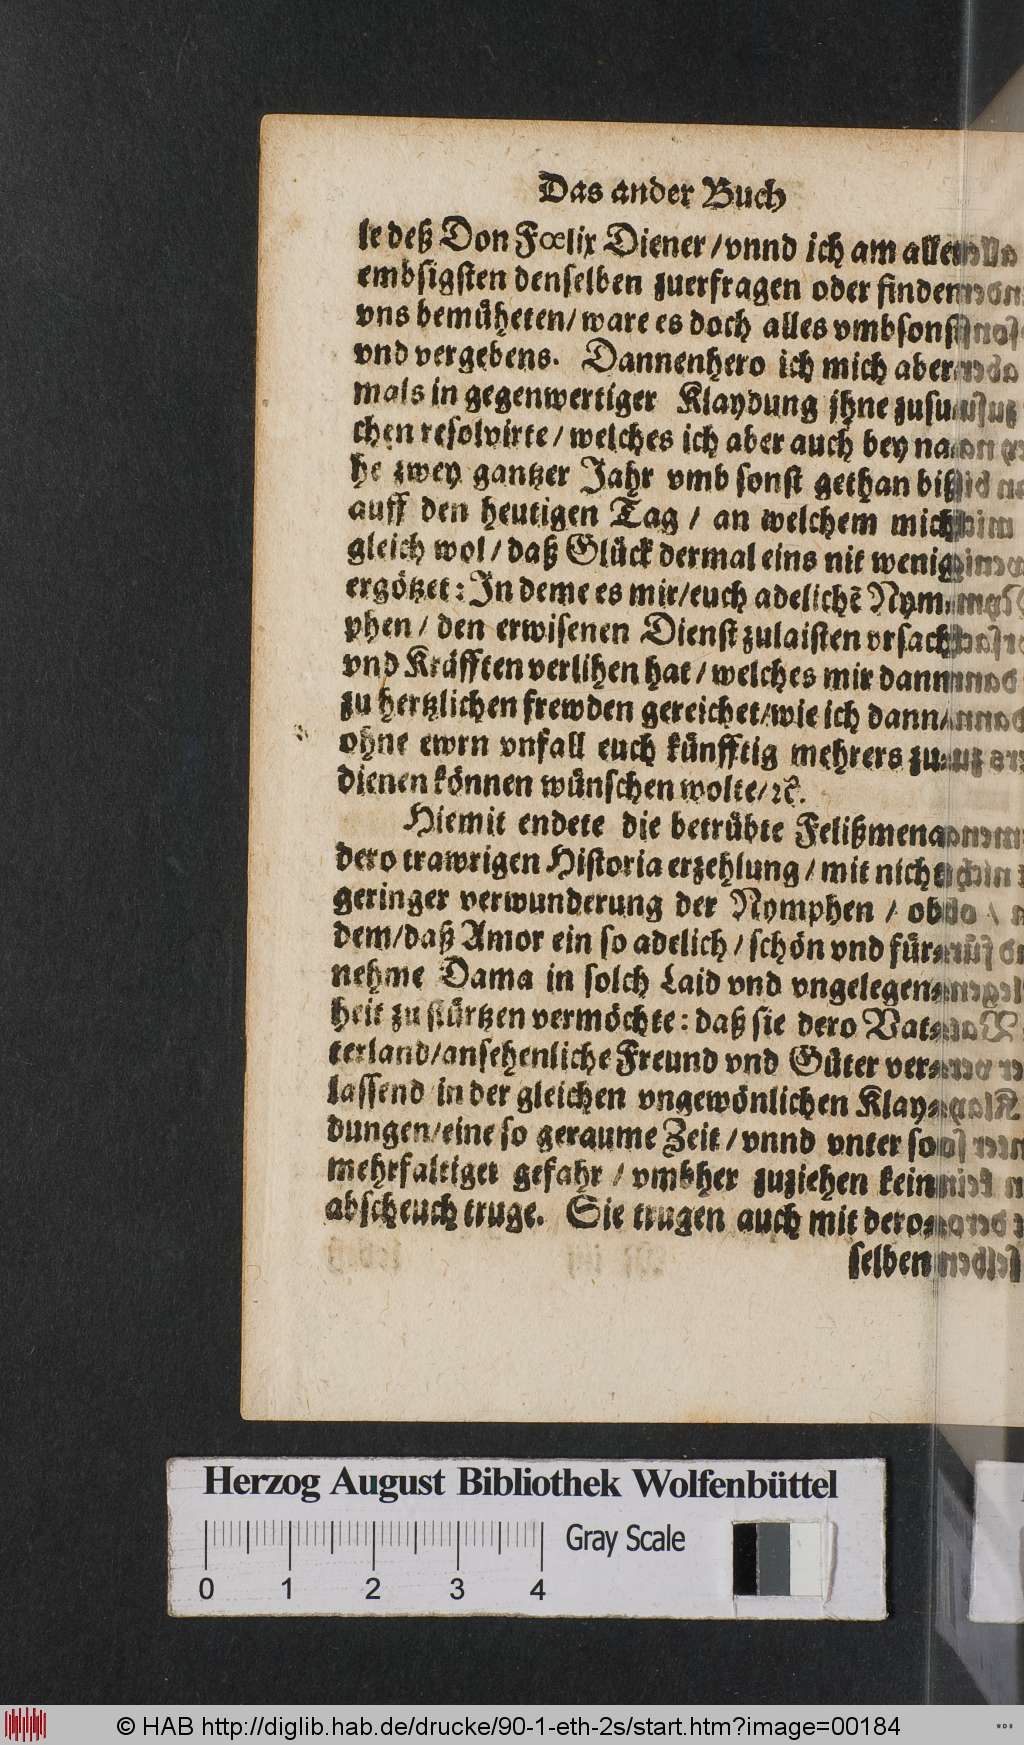 Das ander Buch
le deß Don Fœlix Diener / vnnd ich am aller
embsigsten denselben zuerfragen oder finden
vns bemüheten / ware es doch alles vmbsonst
vnd vergebens. Dannenhero ich mich aber-
mals in gegenwertiger Klaydung jhne zusu-
chen resolvirte / welches ich aber auch bey na-
he zwey gantzer Jahr vmb sonst gethan biß
auff den heutigen Tag / an welchem mich
gleich wol / daß Glück dermal eins nit wenig
ergötzet: In deme es mir / euch adelichẽ Nym-
phen / den erwisenen Dienst zulaisten vrsach
vnd Kräfften verlihen hat / welches mir dann
zu hertzlichen frewden gereichet / wie ich dann /
ohne ewrn vnfall euch künfftig mehrers zu-
dienen können wünschen wolte / ꝛc.
Hiemit endete die betrübte Felißmena
dero trawrigen Historia erzehlung / mit nicht
geringer verwunderung der Nymphen / ob
dem / daß Amor ein so adelich / schön vnd für-
nehme Dama in solch Laid vnd vngelegen-
heit zu stürtzen vermöchte: daß sie dero Vat-
terland / ansehenliche Freund vnd Güter ver-
lassend in der gleichen vngewönlichen Klay-
dungen / eine so geraume Zeit / vnnd vnter so
mehrfaltiger gefahr / vmbher zuziehen kein
abscheuch truge. Sie trugen auch mit dero-
selben
Herzog August Bibliothek Wolfenbüttel
Gray Scale
0 1 2 3 4
© HAB http://diglib.hab.de/drucke/90-1-eth-2s/start.htm?image=00184